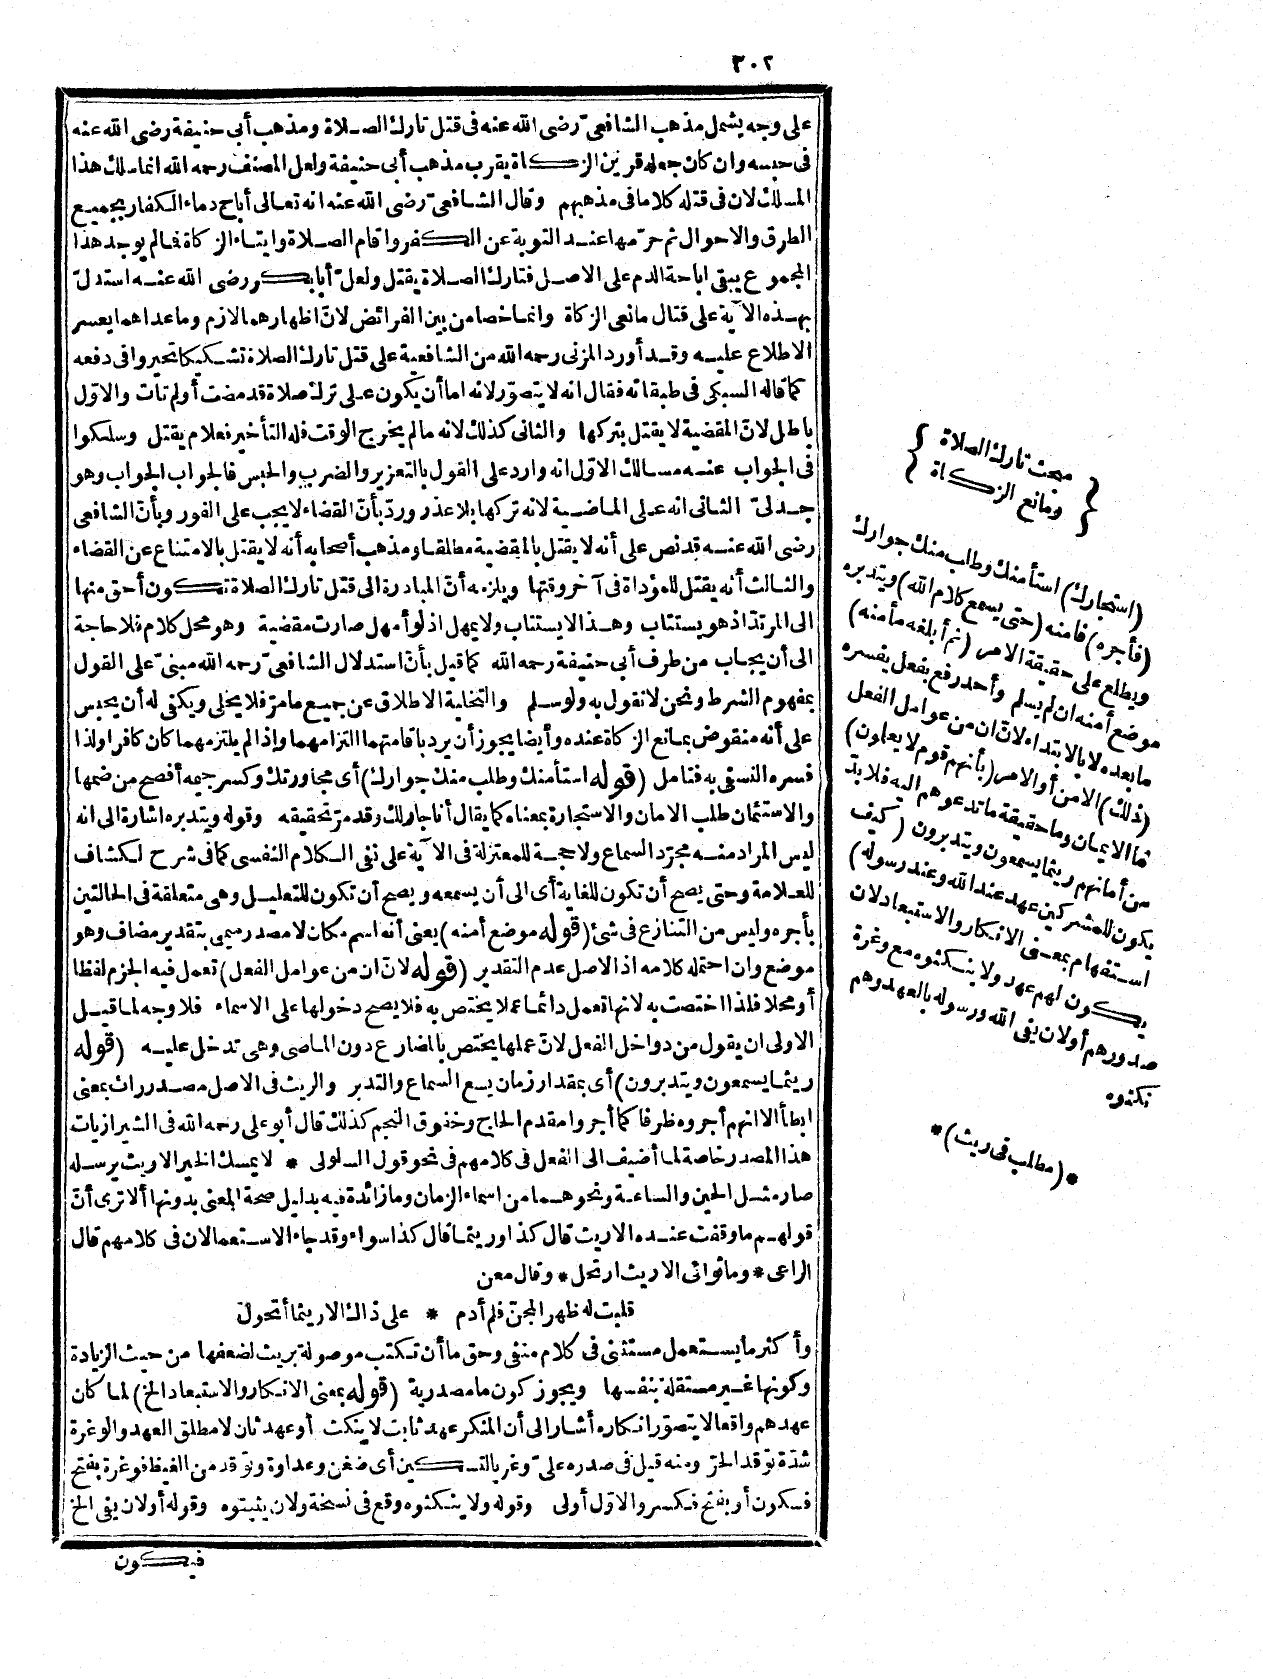 ٣٠٢
على وجه يشمل مذهب الشافعىّ رضى الله عنه فى قتل تارك الصلاة ومذهب أبى حنيفة رضى الله عنه
فى حبسه وان كان جعله قرين الزكاة يقرب مذهب أبى حنيفة ولعل المصنف رحمه الله انما سلك هذا
المسلك لان فى قتله كلاما فى مذهبهم وقال الشافعىّ رضى الله عنه انه تعالى أباح دماء الكفار بجميع
الطرق والاحوال ثم حرّمها عند التوبة عن الكفر واقام الصلاة وايتاء الزكاة فمالم يوجد هذا
المجموع يبقى اباحة الدم على الاصل فتارك الصلاة يقتل ولعلّ أبا بكر رضى الله عنه استدلّ
بهذه الآية على قتال مانعى الزكاة وانما خصا من بين الفرائض لانّ اظهارهما لازم وما عداهما يعسر
الاطلاع عليه وقد أورد المزنى رحمه الله من الشافعية على قتل تارك الصلاة تشكيكا تحيروا فى دفعه
كما قاله السبكى فى طبقاته فقال انه لا يتصوّر لانه اما أن يكون على ترك صلاة قد مضت أو لم تأت والاوّل
باطل لانّ المقضية لا يقتل بتركها والثانى كذلك لانه مالم يخرج الوقت فله التأخير فعلام يقتل وسلكوا
فى الجواب عنه مسالك الاوّل انه وارد على القول بالتعزير والضرب والحبس فالجواب الجواب وهو
جدلىّ الثانى انه على الماضية لانه تركها بلا عذر وردّ بأنّ القضاء لا يجب على الفور وبأنّ الشافعى
رضى الله عنه قد نص على أنه لا يقتل بالمقضية مطلقا ومذهب أصحابه أنه لا يقتل بالامتناع عن القضاء
والثالث أنه يقتل للمؤدّاة فى آخر وقتها ويلزمه أنّ المبادرة الى قتل تارك الصلاة تكون أحق منها
الى المرتد اذ هو يستتاب وهذا لا يستتاب ولا يمهل اذ لو أمهل صارت مقضية وهو محل كلام فلا حاجة
الى أن يجاب من طرف أبى حنيفة رحمه الله كما قيل بأنّ استدلال الشافعىّ رحمه الله مبنىّ على القول
بمفهوم الشرط ونحن لا نقول به ولو سلم والتخلية الاطلاق عن جميع ما مرّ فلا يخلى ويكفى له أن يحبس
على أنه منقوض بمانع الزكاة عنده وأيضا يجوز أن يرد باقامتهما التزامهما واذا لم يلتزمهما كان كافرا ولذا
فسره النسفى به فتامل (قوله استأمنك وطلب منك جوارك) أى مجاورتك وكسر جيمه أفصح من ضمها
والاستئمان طلب الامان والاستجارة بمعناه كما يقال أنا جار لك وقد مرّ تحقيقه وقوله ويتدبره اشارة الى انه
ليس المراد منه مجرّد السماع ولا حجة للمعتزلة فى الآية على نفى الكلام النفسى كما فى شرح لكشاف
للعلامة وحتى يصح أن تكون للغاية أى الى أن يسمعه ويصح أن تكون للتعليل وهى متعلقة فى الحالتين
بأجره وليس من التنازع فى شئ (قوله موضع أمنه) يعنى أنه اسم مكان لا مصدر ميمى بتقدير مضاف وهو
موضع وان احتمله كلامه اذ الاصل عدم التقدير (قوله لانّ ان من عوامل الفعل) تعمل فيه الجزم لفظا
أو محلا فلذا اختصت به لانها تعمل دائما عملا يختص به فلا يصح دخولها على الاسماء فلا وجه لما قيل
الاولى ان يقول من دواخل الفعل لانّ عملها يختص بالمضارع دون الماضى وهى تدخل عليه (قوله
ريثما يسمعون ويتدبرون) أى بمقدار زمان يسع السماع والتدبر والريث فى الاصل مصدر راث بمعنى
ابطأ الا انهم أجروه ظرفا كما أجروا مقدم الحاج وخفوق النجم كذلك قال أبو على رحمه الله فى الشيرازيات
هذا المصدر خاصة لما أضيف الى الفعل فى كلامهم فى نحو قول السلولى * لا يمسك الخير الا ريث يرسله
صار مثل الحين والساعة ونحوهما من اسماء الزمان وما زائدة فيه بدليل صحة المعنى بدونها ألا ترى أنّ
قولهم ما وقفت عنده الا ريث قال كذا وريثما قال كذا سواء وقد جاء الاستعمالان فى كلامهم قال
الراعى * وما ثوائى الا ريث ارتحل * وقال معن
قلبت له ظهر المجنّ فلم أدم * على ذاك الا ريثما أتحولّ
وأكثر ما يستعمل مستثنى فى كلام منفى وحق ما أن تكتب موصولة بريث لضعفها من حيث الزيادة
وكونها غير مستقلة بنفسها ويجوز كون ما مصدرية (قوله بمعنى الانكار والاستبعاد الخ) لما كان
عهدهم واقعا لا يتصوّر انكاره أشار الى أن المنكر عهد ثابت لا ينكث أو عهد ثان لا مطلق العهد والوغرة
شدّة توقد الحرّ ومنه قيل فى صدره علىّ وغر بالتسكين أى ضغن وعداوة وتوقد من الغيظ فوغرة بفتح
فسكون أو بفتح فكسر والاوّل أولى وقوله ولا ينكثوه وقع فى نسخة ولان يثبتوه وقوله أولان يفى الخ
فيكون
مبحث تارك الصلاة
ومانع الزكاة
(استجارك) استأمنك وطلب منك جوارك
(فأجره) فامنه (حتى يسمع كلام الله) ويتدبره
ويطلع على حقيقة الامر (ثم أبلغه مأمنه)
موضع أمنه ان لم يسلم وأحد رفع بفعل يفسره
ما بعده لا بالابتداء لانّ ان من عوامل الفعل
(ذلك) الامن أو الامر (بأنهم قوم لا يعلمون)
ما الايمان وما حقيقة ما تدعوهم اليه فلا بدّ
من أمانهم ريثما يسمعون ويتدبرون (كيف
يكون للمشركين عهد عند الله وعند رسوله)
استفهام بمعنى الانكار والاستبعاد لان
يكون لهم عهد ولا ينكثوه مع وغرة
صدورهم أولان يفى الله ورسوله بالعهد وهم
نكثوه
*(مطلب فى ريث)*